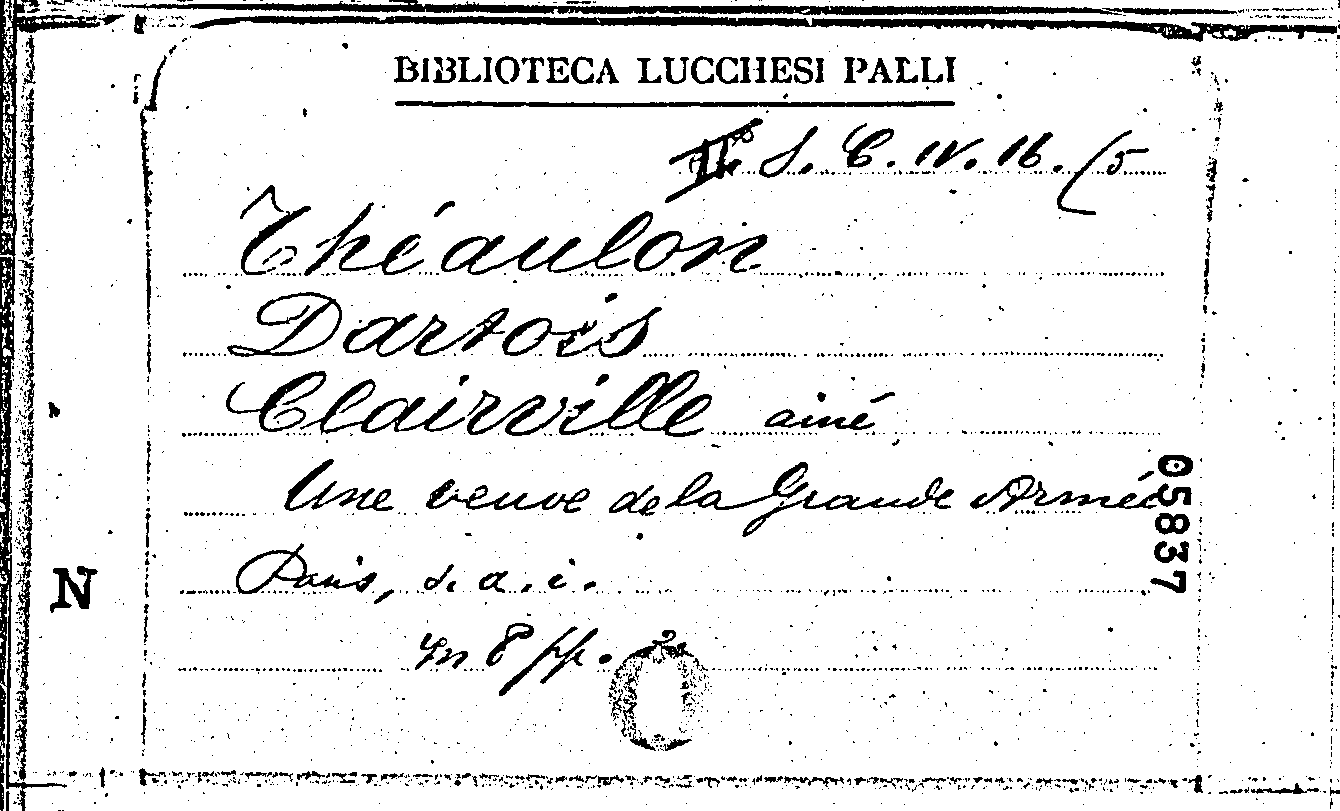 BIBLIOTECA LUCCHESI PALLI
S. C. IV. 16. (5
Théaulon
Dartois
Clairville ainé
Une veuve de la Grande Armée
05837
Paris, s. a. i.
N
in 8 pp.